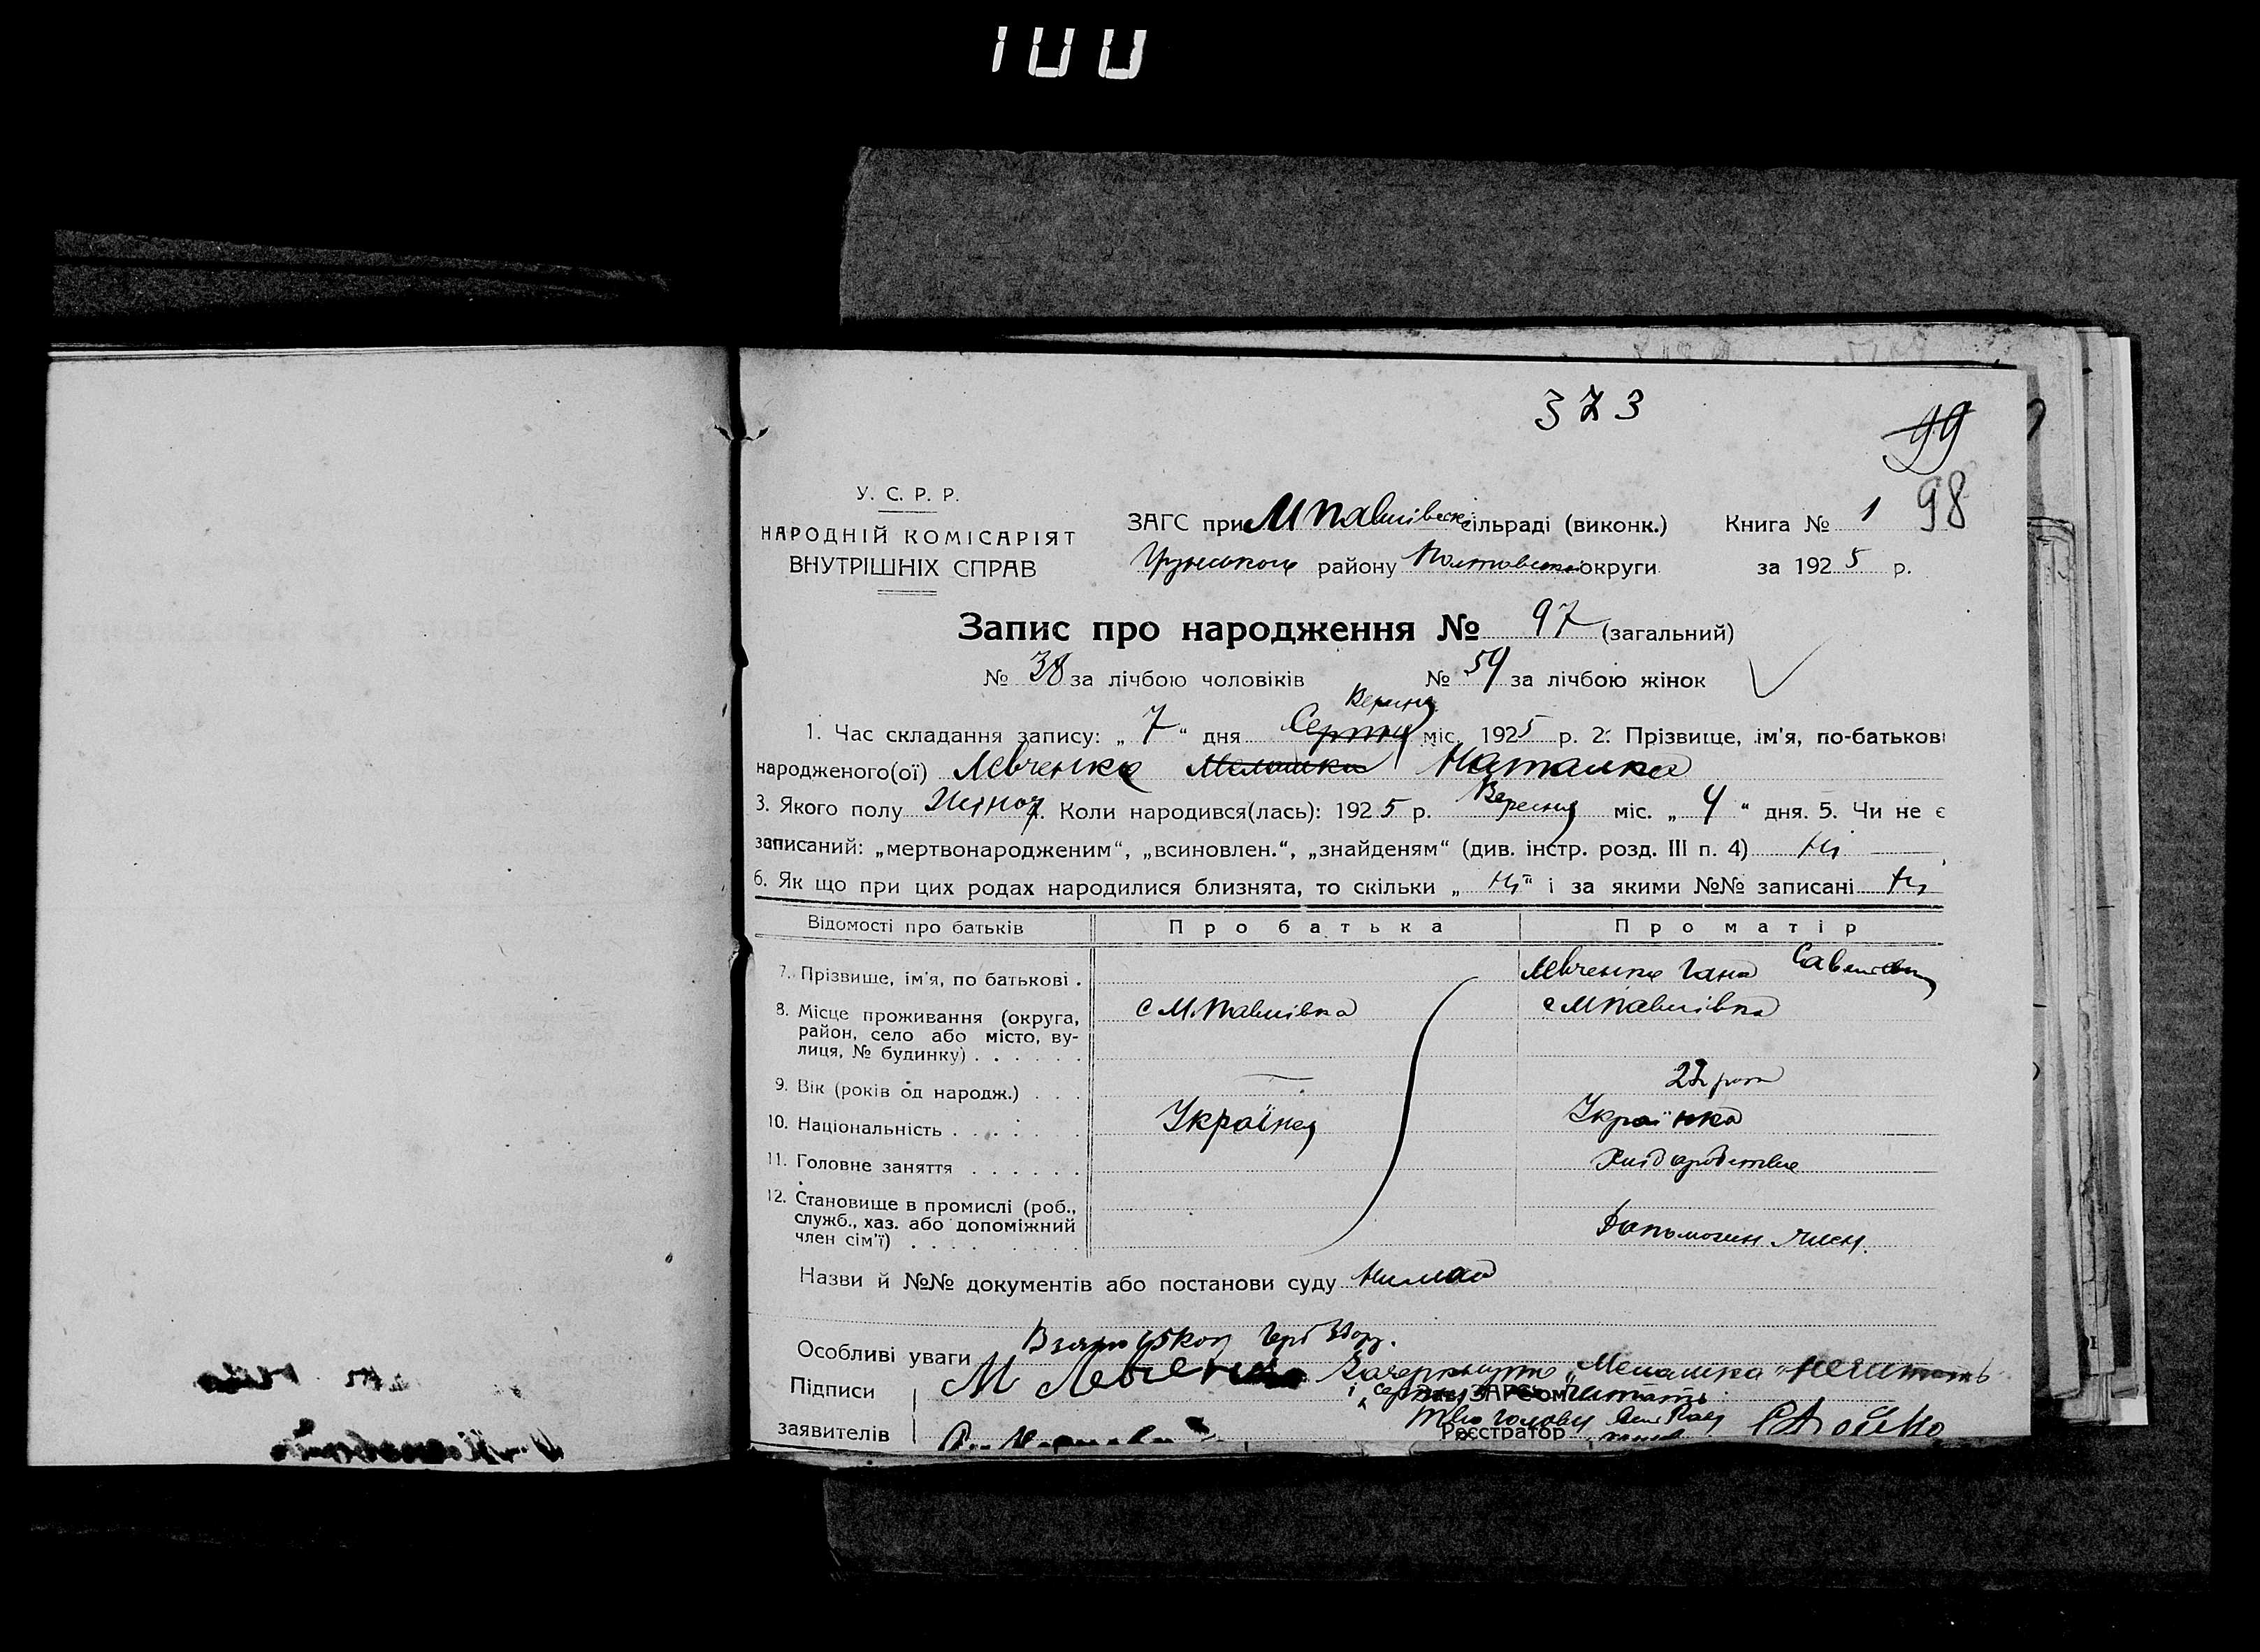 100
373
99
98
У. С. Р. Р.
НАРОДНІЙ КОМІСАРІЯТ
ВНУТРІШНІХ СПРАВ
ЗАГС при М Павлівськ сільраді (виконк.) Книга № 1
Грунського району Полтавської округи за 1925 р.
Запис про народження № 97 (загальний)
№ 38 за лічбою чоловіків № 59 за лічбою жінок
Вересня
1. Час складання запису: „ 7 “ дня Серпня міс. 1925 р. 2. Прізвище, ім'я, по-батькові
народженого(ої) Левченко Меланка Наталка
3. Якого полу Жіноч 4. Коли народився(лась): 1925 р. Вересня міс. „ 4 “ дня. 5. Чи не є
записаний: „мертвонародженим“, „всиновлен.“, „знайденям“ (див. інстр. розд. III п. 4) Ні
6. Як що при цих родах народилися близнята, то скільки „ Ні “ і за якими №№ записані Ні
Відомості про батьків Про батька Про матір
7. Прізвище, ім'я, по батькові . Левченко Гана
8. Місце проживання (округа, с М. Павлівка с М Павлівка
район, село або місто, ву-
лиця, № будинку) . . . . . .
9. Вік (років од народж.) . . . —
10. Національність . . . . . . Українец Українка
11. Головне заняття . . . . . . Хліборобство
12. Становище в промислі (роб.,
служб., хаз. або допоміжний Допоможн. член.
член сім'ї) . . . . . . . . .
Назви й №№ документів або постанови суду Нимає
Особливі уваги
Підписи М Левченко Зачеркнуто „Меланка“ не читать
і серпня читать
заявителів Реєстратор